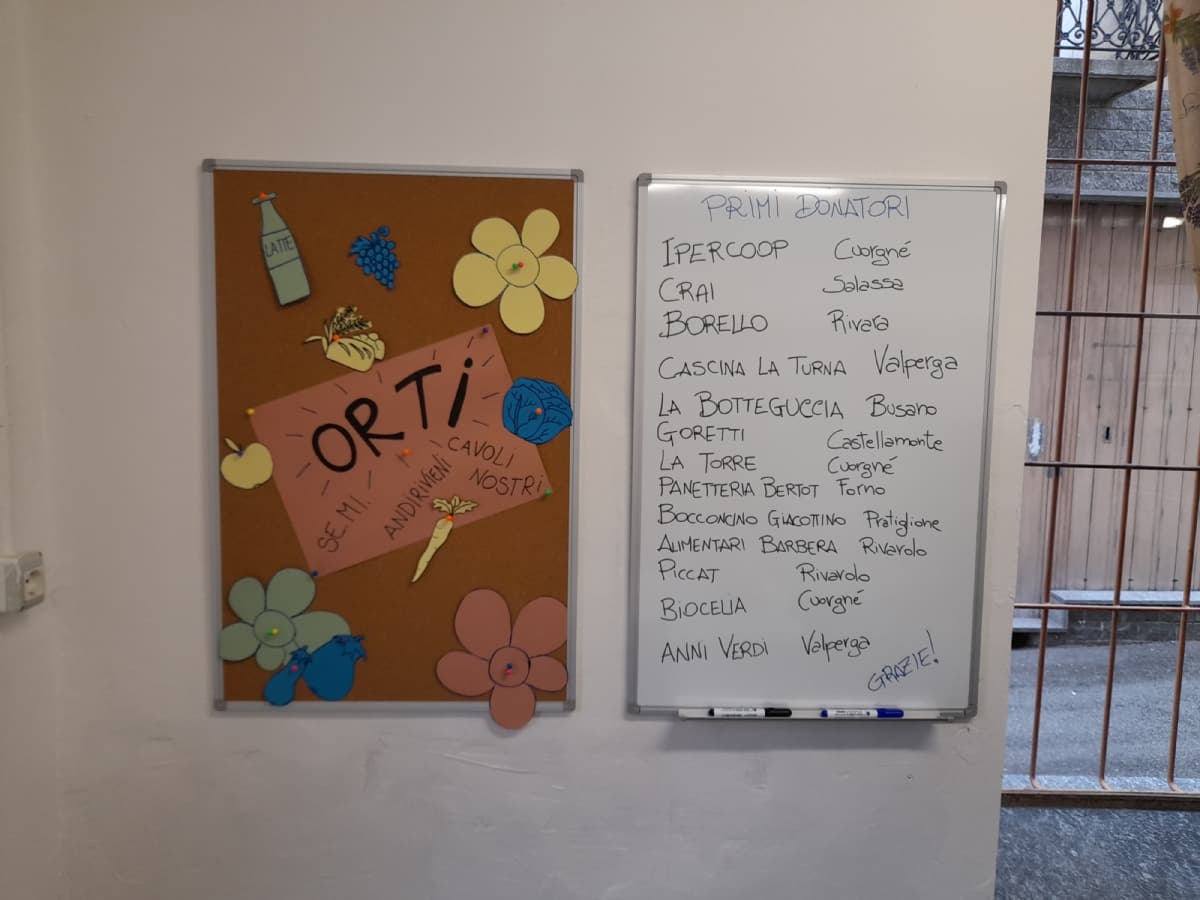 LATTE
ORTi
SE.MI.
ANDIRIVIENI
CAVOLI
NOSTRi
PRIMI DONATORI
IPERCOOP Cuorgné
CRAI Salassa
BORELLO Rivara
CASCINA LA TURNA Valperga
LA BOTTEGUCCIA Busano
GORETTI Castellamonte
LA TORRE Cuorgné
PANETTERIA BERTOT Forno
BOCCONCINO GIACOTTINO Pratiglione
ALIMENTARI BARBERA Rivarolo
PICCAT Rivarolo
BIOCELIA Cuorgné
ANNI VERDI Valperga
GRAZIE!